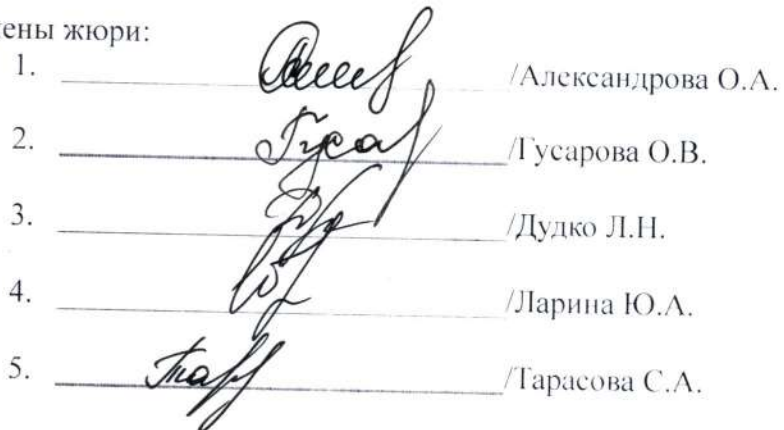 ены жюри:
1. /Александрова О.А.
2. Гуса /Гусарова О.В.
3. /Дудко Л.Н.
4. /Ларина Ю.А.
5. /Тарасова С.А.